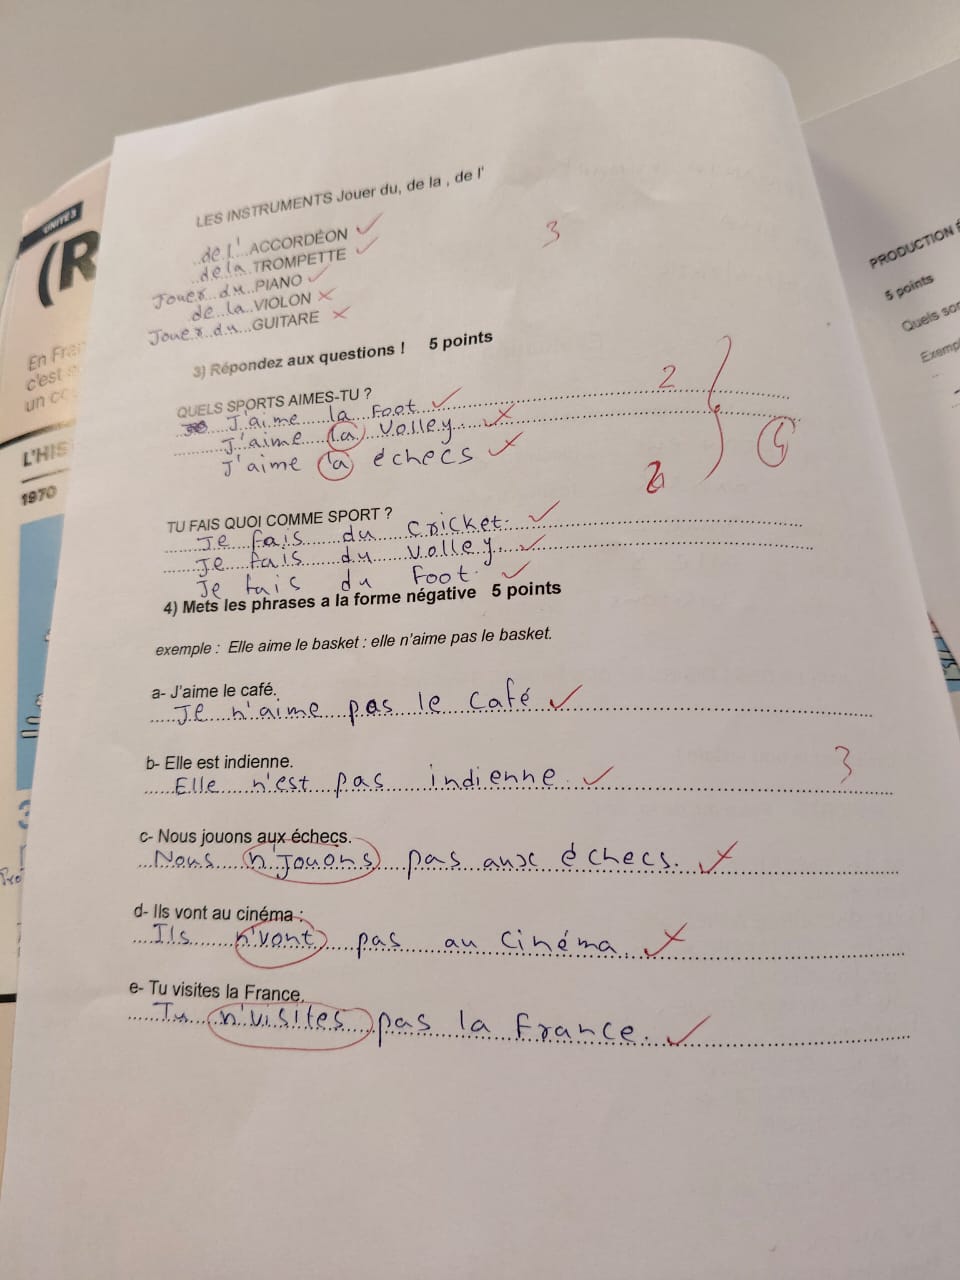 UNITÉ 3
(R
En Fran
c'est
un co
L'HIS
1970
LES INSTRUMENTS Jouer du, de la , de l'
3
..de l'...ACCORDÉON
..de la..TROMPETTE
Jouer..du..PIANO
de la..VIOLON
Jouer du...GUITARE
3) Répondez aux questions ! 5 points
QUELS SPORTS AIMES-TU ?
J'aime la foot
2
J'aime la volley
J'aime la échecs
4
2
TU FAIS QUOI COMME SPORT ?
Je fais du cricket.
Je fais du volley.
Je fais du foot.
4) Mets les phrases a la forme négative 5 points
exemple : Elle aime le basket : elle n'aime pas le basket.
a- J'aime le café.
Je n'aime pas le café
b- Elle est indienne.
Elle n'est pas indienne.
3
c- Nous jouons aux échecs.
Nous n'jouons pas aux échecs.
d- Ils vont au cinéma :
Ils n'vont pas au cinéma.
e- Tu visites la France.
Tu n'visites pas la france.
PRODUCTION
5 points
Quels sor
Exempl